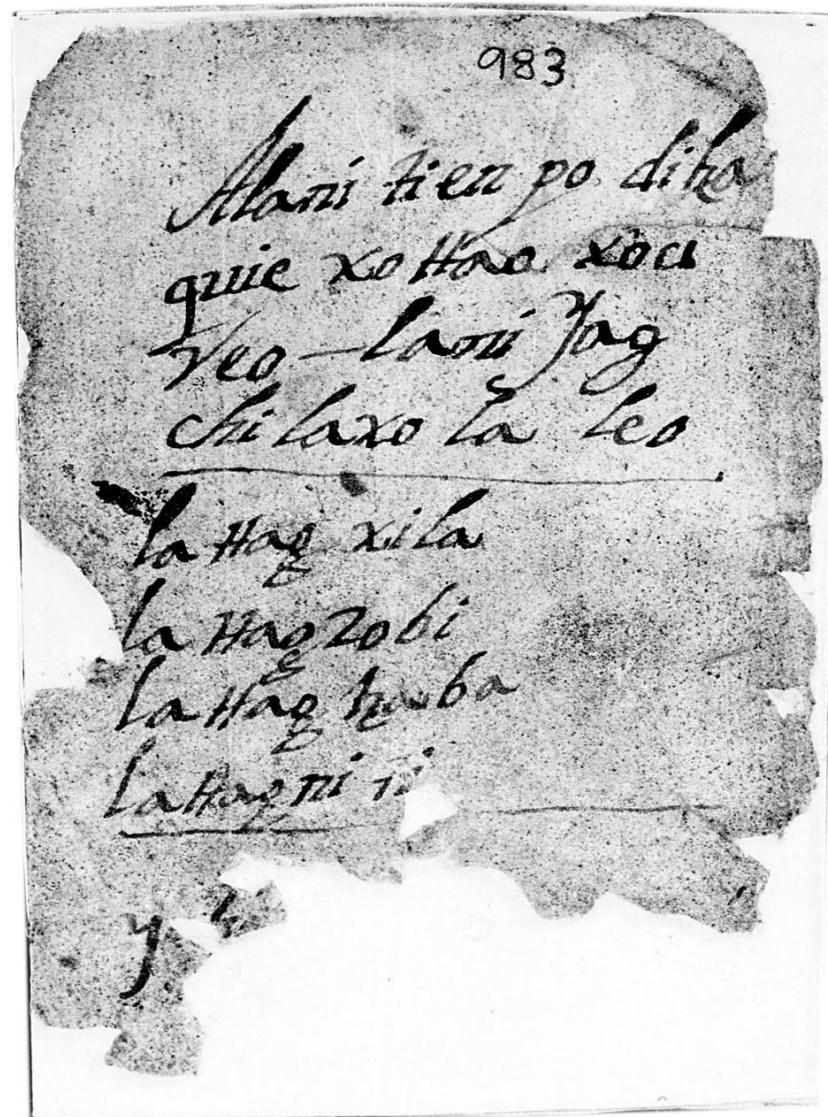 983
Alani tienpo diha
quie xottao xoci
Veo — lani Yag
chilaxo la leo
la ttag xila
la ttag zobi
la ttag haba
la ttag ni
y